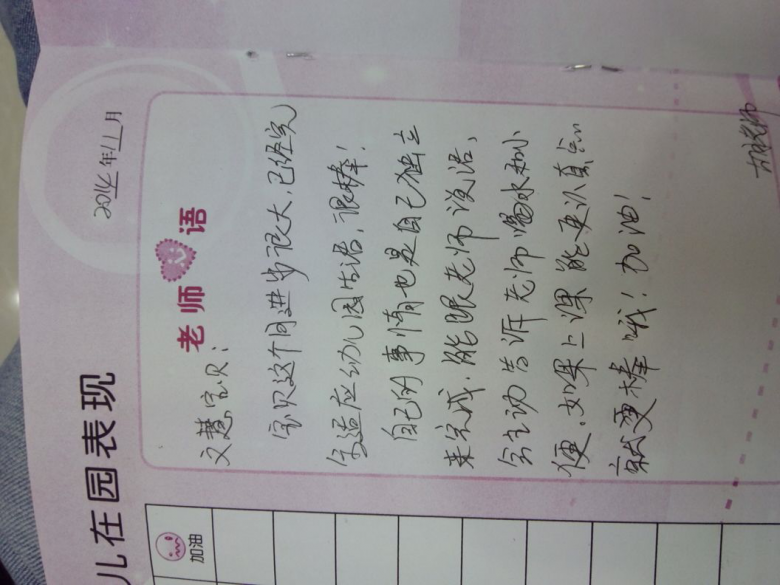 儿在园表现
2014年11月
老师语
文慧宝贝：
宝贝这个月进步很大，已经完
全适应幼儿园生活，很棒！
自己的事情也是自己独立
来完成，能跟老师说话、
会主动告诉老师喝水和小
便，如果上课能更认真点
就更棒哦！加油！
老师
加油